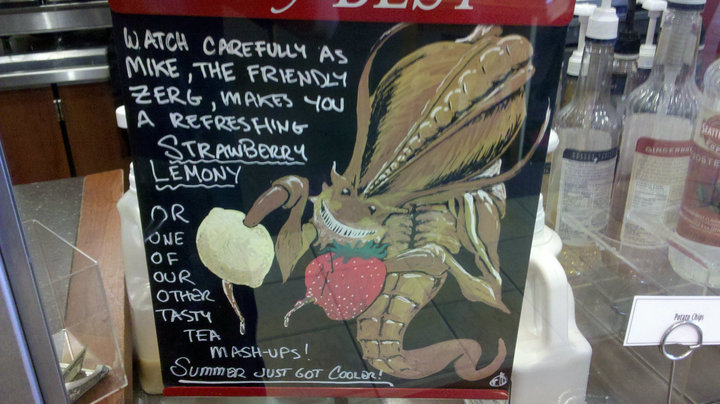 BEST
WATCH CAREFULLY AS
MIKE, THE FRIENDLY
ZERG, MAKES YOU
A REFRESHING
STRAWBERRY
LEMONY
OR
ONE
OF
OUR
OTHER
TASTY
TEA
MASH-UPS!
SUMMER JUST GOT COOLER!
Potato Chips